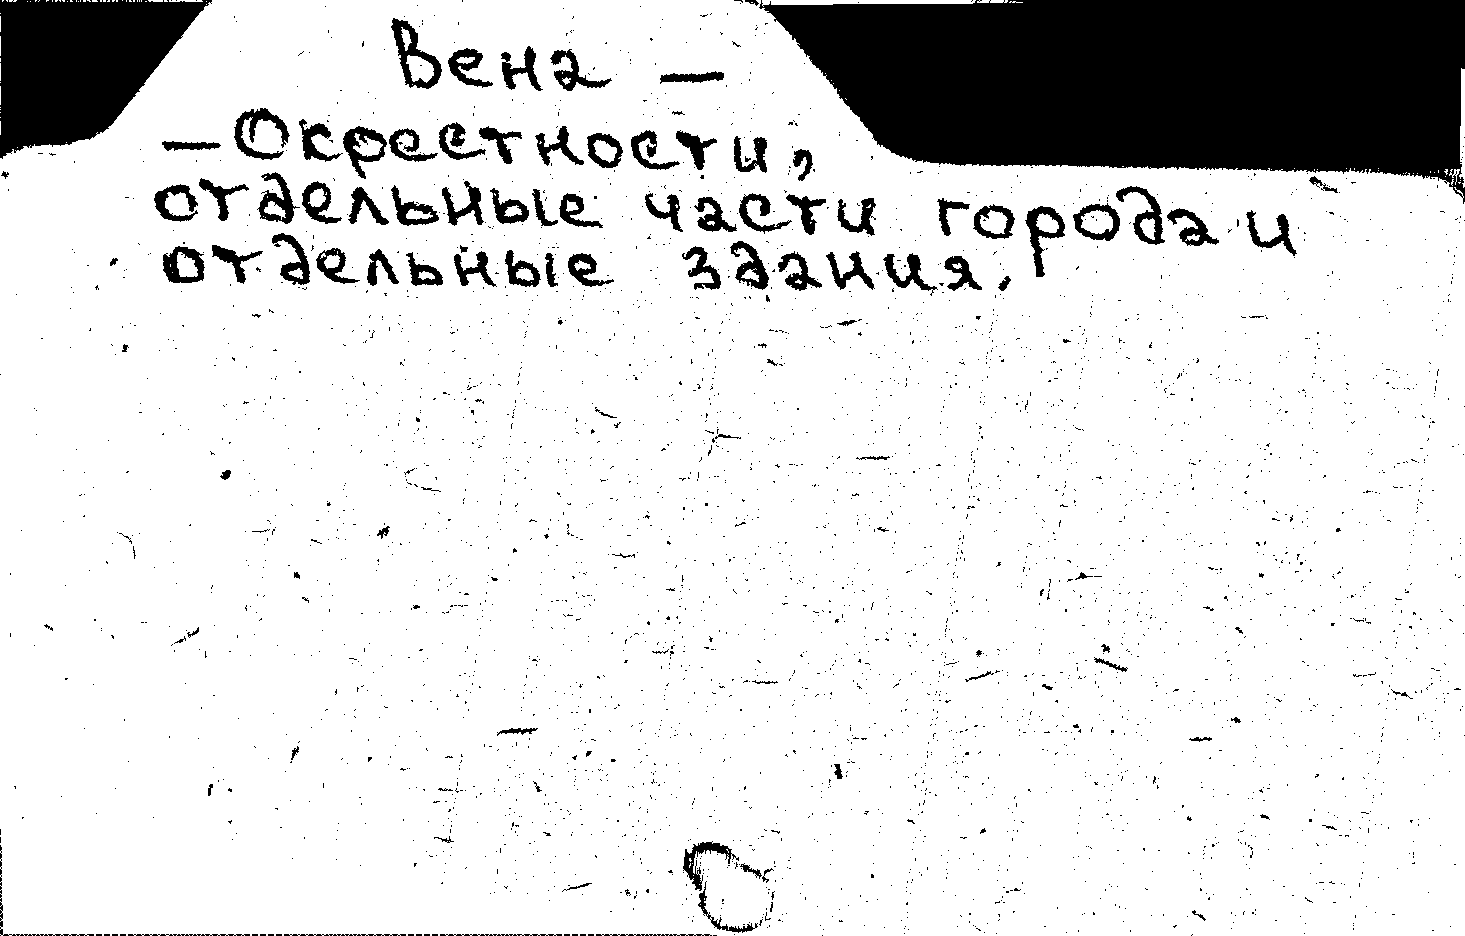 Вена —
— Окрестности,
отдельные части города и
отдельные здания.